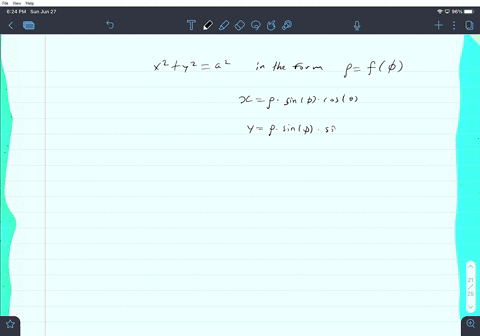 File View Help
6:24 PM Sun Jun 27
96%
x² + y² = a² in the form ρ = f(φ)
x = ρ · sin(φ) · cos(θ)
y = ρ · sin(φ) · si
21 / 26